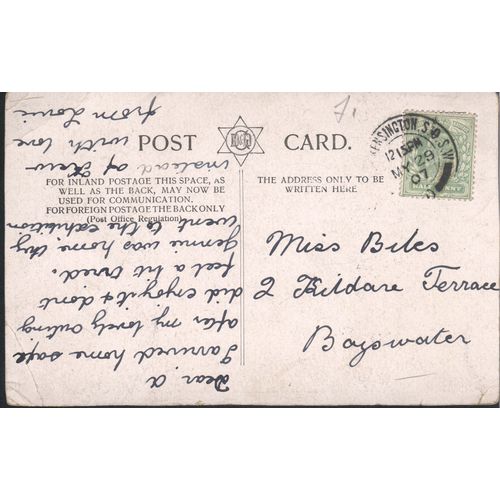 POST CARD.
FOR INLAND POSTAGE THIS SPACE, AS
WELL AS THE BACK, MAY NOW BE
USED FOR COMMUNICATION.
FOR FOREIGN POSTAGE THE BACK ONLY
(Post Office Regulation)
THE ADDRESS ONLY TO BE
WRITTEN HERE
KENSINGTON S.O.S.W
12 15 PM
MY 29
07
HALFPENNY
Miss Biles
2 Kildare Terrace
Bayswater
Dear A
I arrived home safe
after my lovely outing
did enjoy it & dont
feel a bit tired.
Jennie was home, they
went to the exhibition
instead of Kew
with love
from